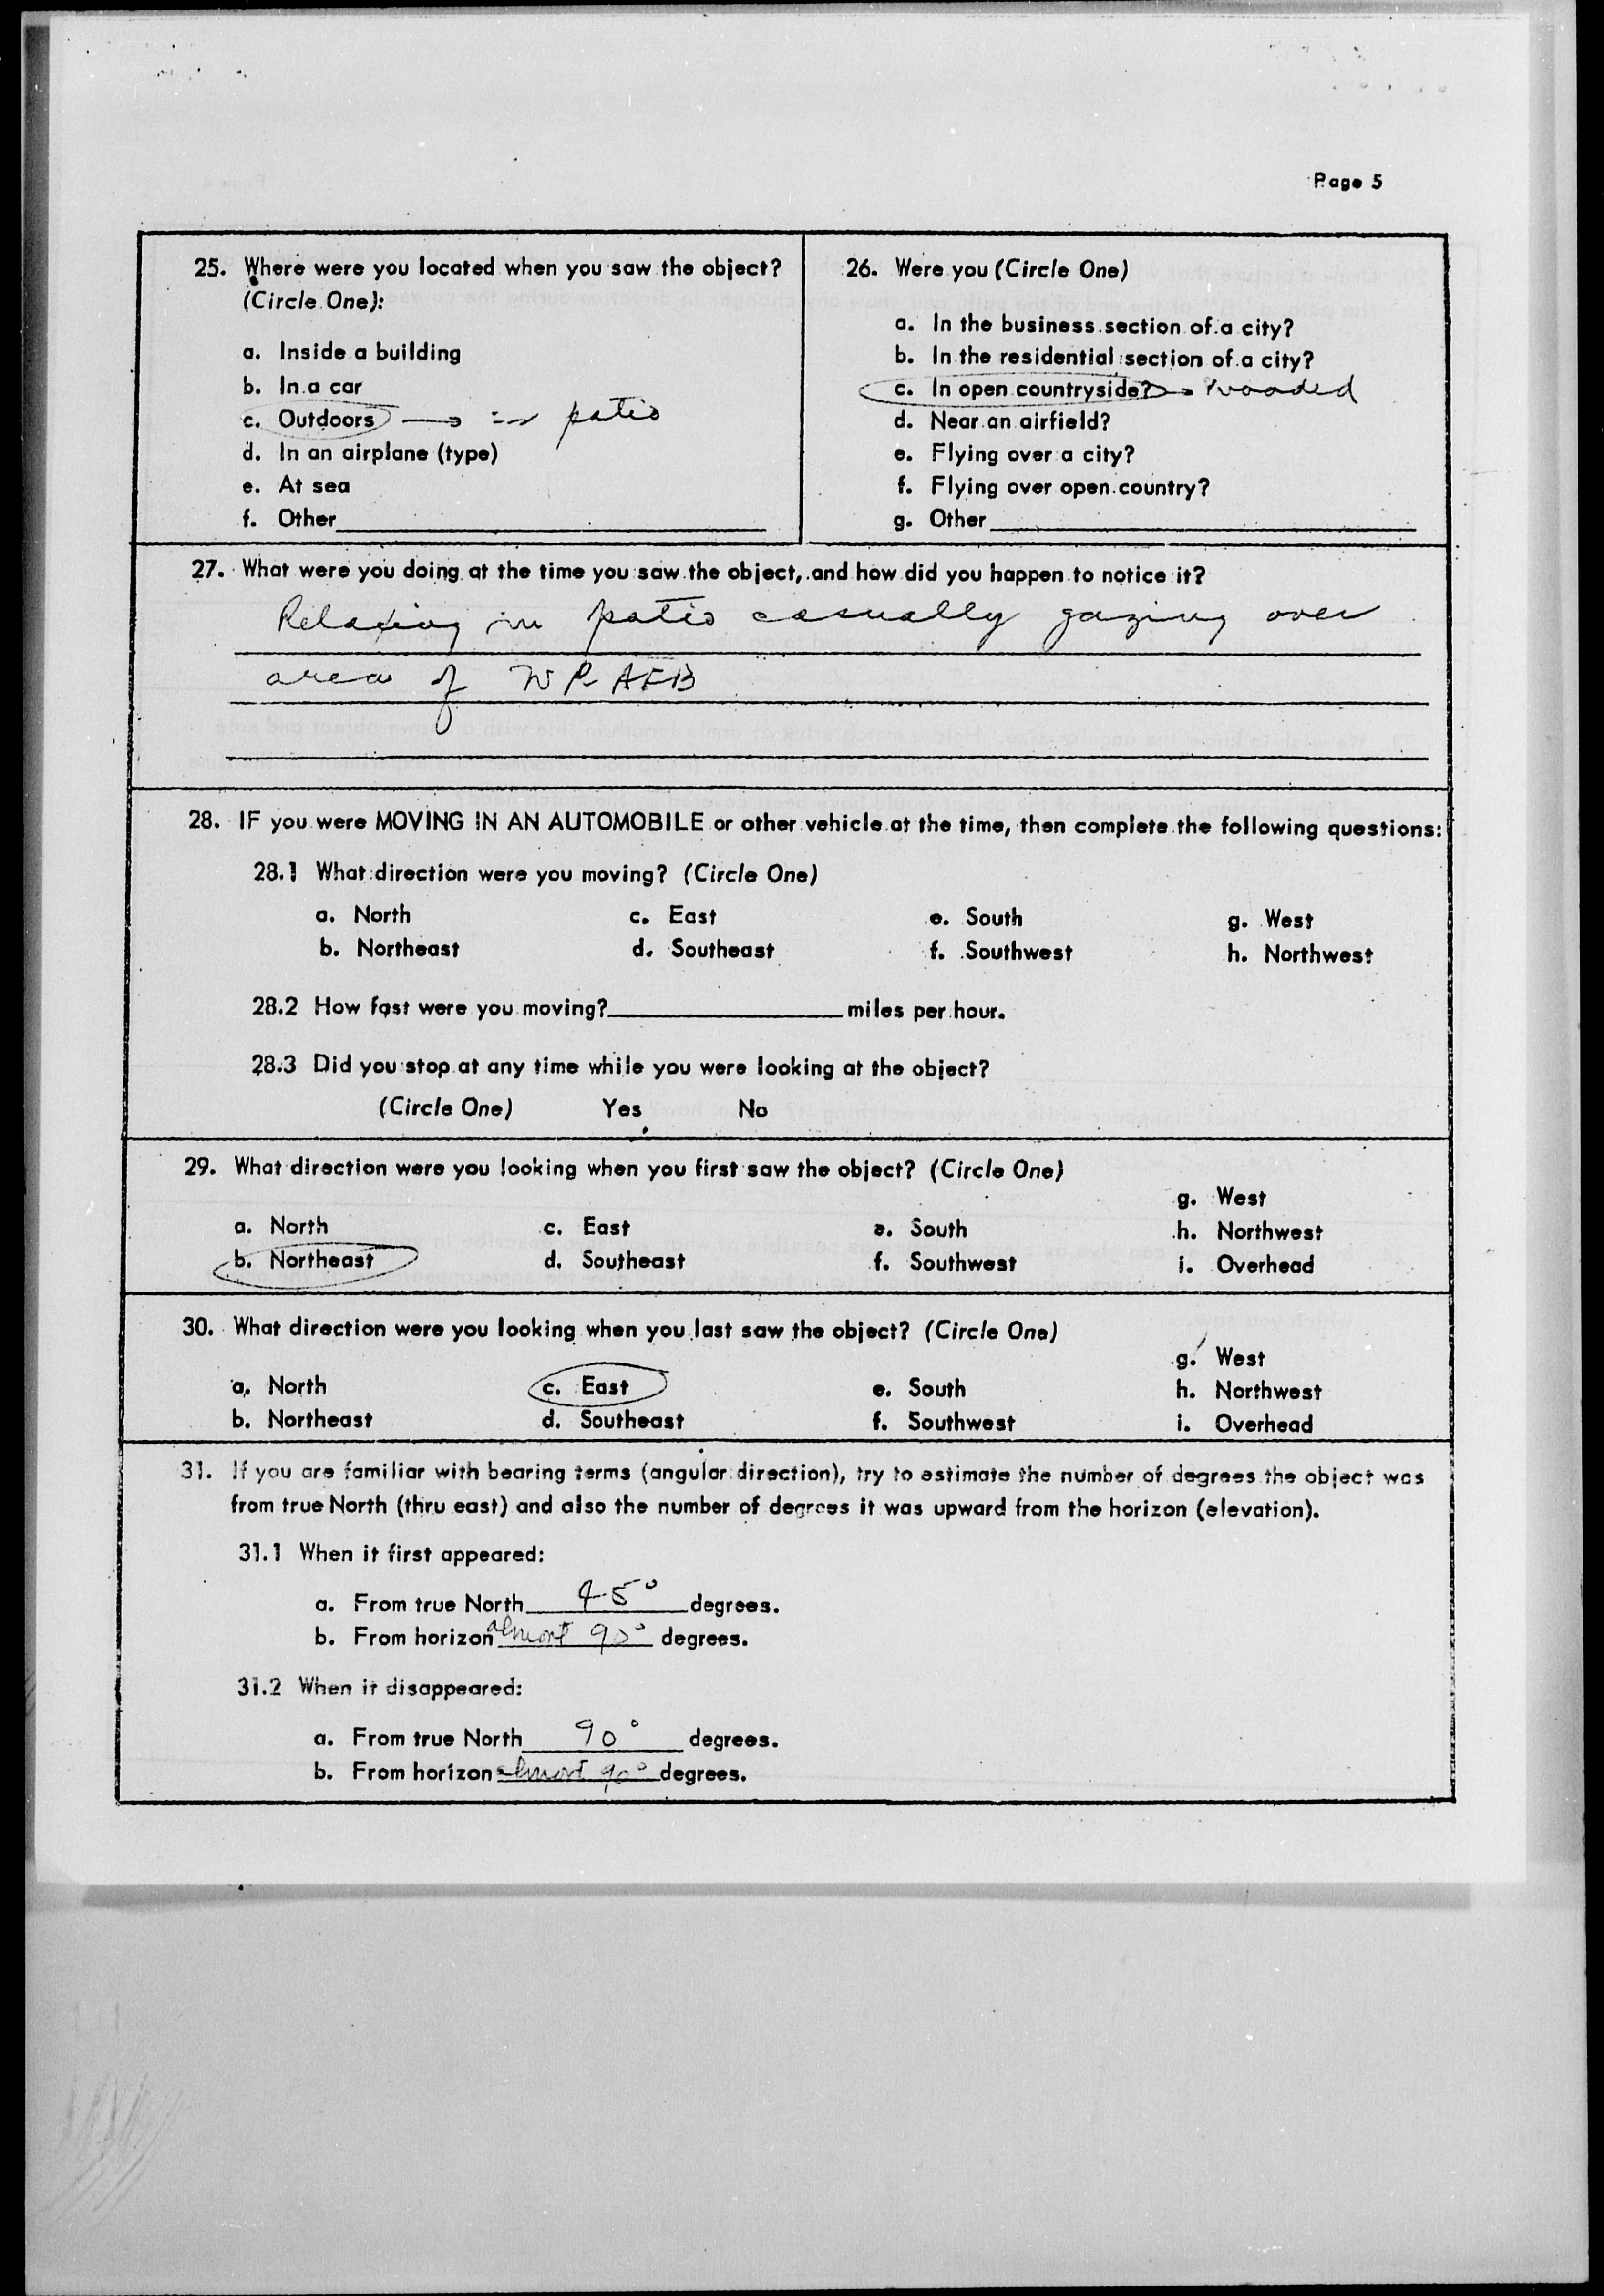 Page 5
25. Where were you located when you saw the object?
(Circle One):
a. Inside a building
b. In a car
c. Outdoors → in patio
d. In an airplane (type)
e. At sea
f. Other
26. Were you (Circle One)
a. In the business section of a city?
b. In the residential section of a city?
c. In open countryside? → wooded
d. Near an airfield?
e. Flying over a city?
f. Flying over open country?
g. Other
27. What were you doing at the time you saw the object, and how did you happen to notice it?
Relaxing in patio casually gazing over
area of WPAFB
28. IF you were MOVING IN AN AUTOMOBILE or other vehicle at the time, then complete the following questions:
28.1 What direction were you moving? (Circle One)
a. North c. East e. South g. West
b. Northeast d. Southeast f. Southwest h. Northwest
28.2 How fast were you moving? miles per hour.
28.3 Did you stop at any time while you were looking at the object?
(Circle One) Yes No
29. What direction were you looking when you first saw the object? (Circle One)
g. West
a. North c. East e. South h. Northwest
b. Northeast d. Southeast f. Southwest i. Overhead
30. What direction were you looking when you last saw the object? (Circle One)
g. West
a. North c. East e. South h. Northwest
b. Northeast d. Southeast f. Southwest i. Overhead
31. If you are familiar with bearing terms (angular direction), try to estimate the number of degrees the object was
from true North (thru east) and also the number of degrees it was upward from the horizon (elevation).
31.1 When it first appeared:
a. From true North 45° degrees.
b. From horizon almost 90° degrees.
31.2 When it disappeared:
a. From true North 90° degrees.
b. From horizon almost 90° degrees.